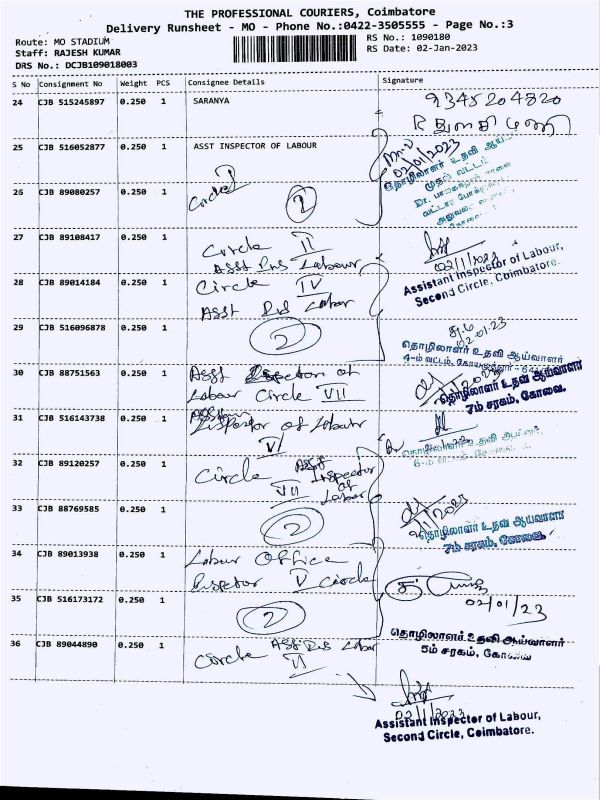 THE PROFESSIONAL COURIERS, Coimbatore
Delivery Runsheet - MO - Phone No.:0422-3505555 - Page No.:3
Route: MO STADIUM
Staff: RAJESH KUMAR
DRS No.: DCJB109018003
RS No.: 1090180
RS Date: 02-Jan-2023
S No Consignment No Weight PCS Consignee Details Signature
24 CJB 515245897 0.250 1 SARANYA 9345204820
R துளசிமணி
25 CJB 516052877 0.250 1 ASST INSPECTOR OF LABOUR
02/01/2023
தொழிலாளர் உதவி ஆய்
முதல் வட்டம்
26 CJB 89080257 0.250 1 Circle I 2
27 CJB 89108417 0.250 1 Circle II
Asst Ins Labour
02/1/2023
Assistant Inspector of Labour,
Second Circle, Coimbatore.
28 CJB 89014184 0.250 1 Circle IV
Asst Ins Labor
29 CJB 516096878 0.250 1 2
02.01.23
தொழிலாளர் உதவி ஆய்வாளர்
4-ம் வட்டம்,
30 CJB 88751563 0.250 1 Asst Inspector of
Labour Circle VII
தொழிலாளர் உதவி ஆய்வாளர்
7ம் சரகம், கோவை.
31 CJB 516143738 0.250 1 Inspector of Labour
VI
தொழிலாளர் உதவி
32 CJB 89120257 0.250 1 Circle VII Asst Inspector of Labour
33 CJB 88769585 0.250 1 2
தொழிலாளர் உதவி ஆய்வாளர்
7ம் சரகம், கோவை.
34 CJB 89013938 0.250 1 Labour Office
Inspector V Circle
02/01/23
35 CJB 516173172 0.250 1 2
தொழிலாளர் உதவி ஆய்வாளர்
5ம் சரகம், கோவை
36 CJB 89044890 0.250 1 Circle II Asst Ins Labor
02/1/2023
Assistant Inspector of Labour,
Second Circle, Coimbatore.